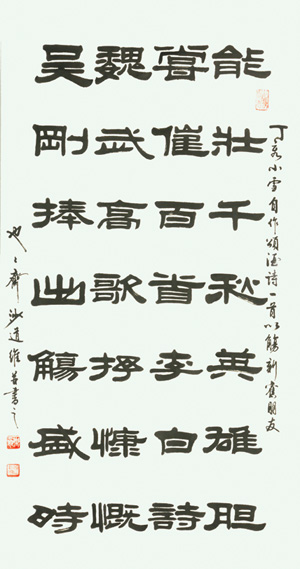 能壯千秋英雄胆
嘗催百首李白詩
魏武高歌抒慷慨
吴剛捧出觴盛時
丁亥小雪自作頌酒诗一首以觴新朋友
齋道維書